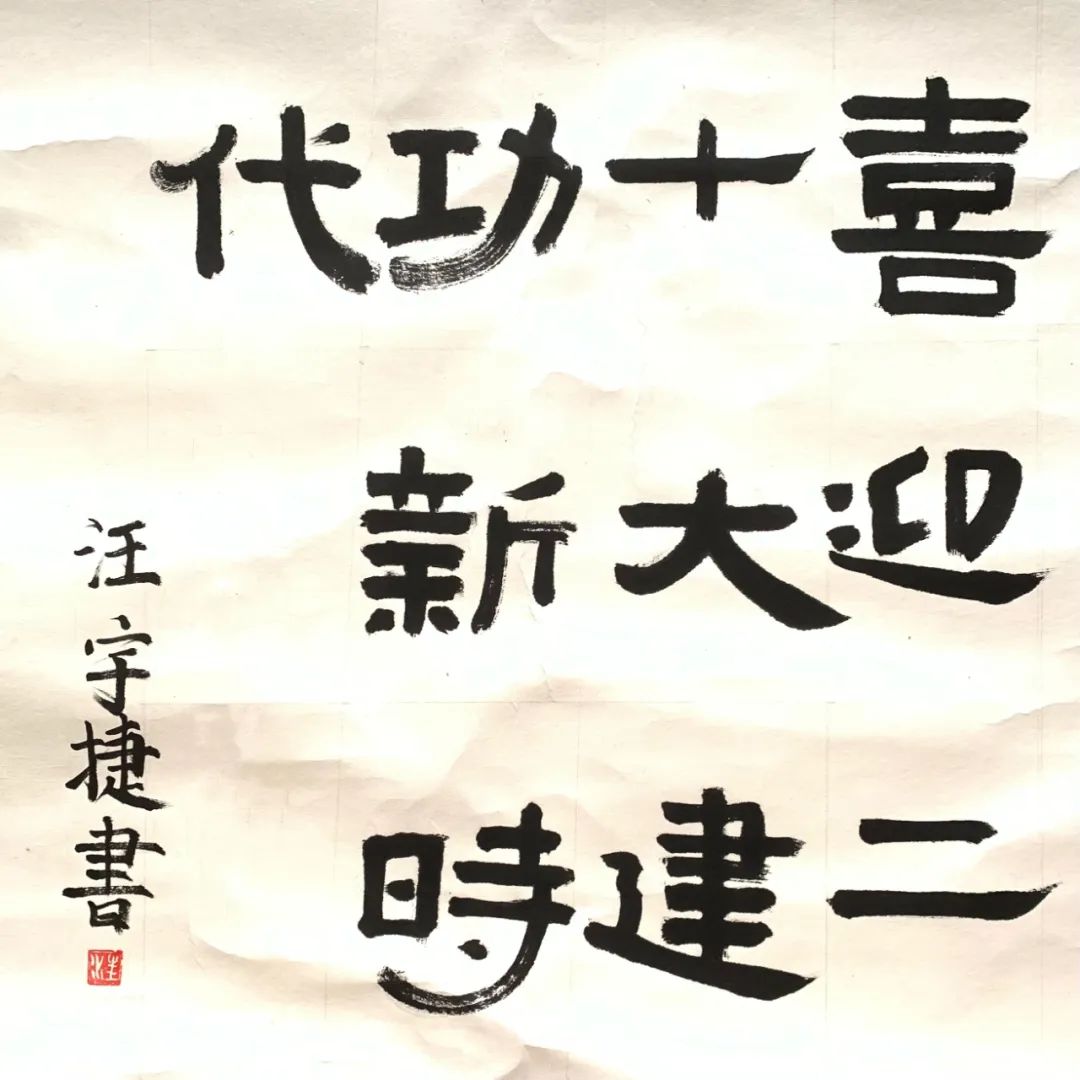 喜迎二
十大建
功新時
代
汪宇捷書
汪